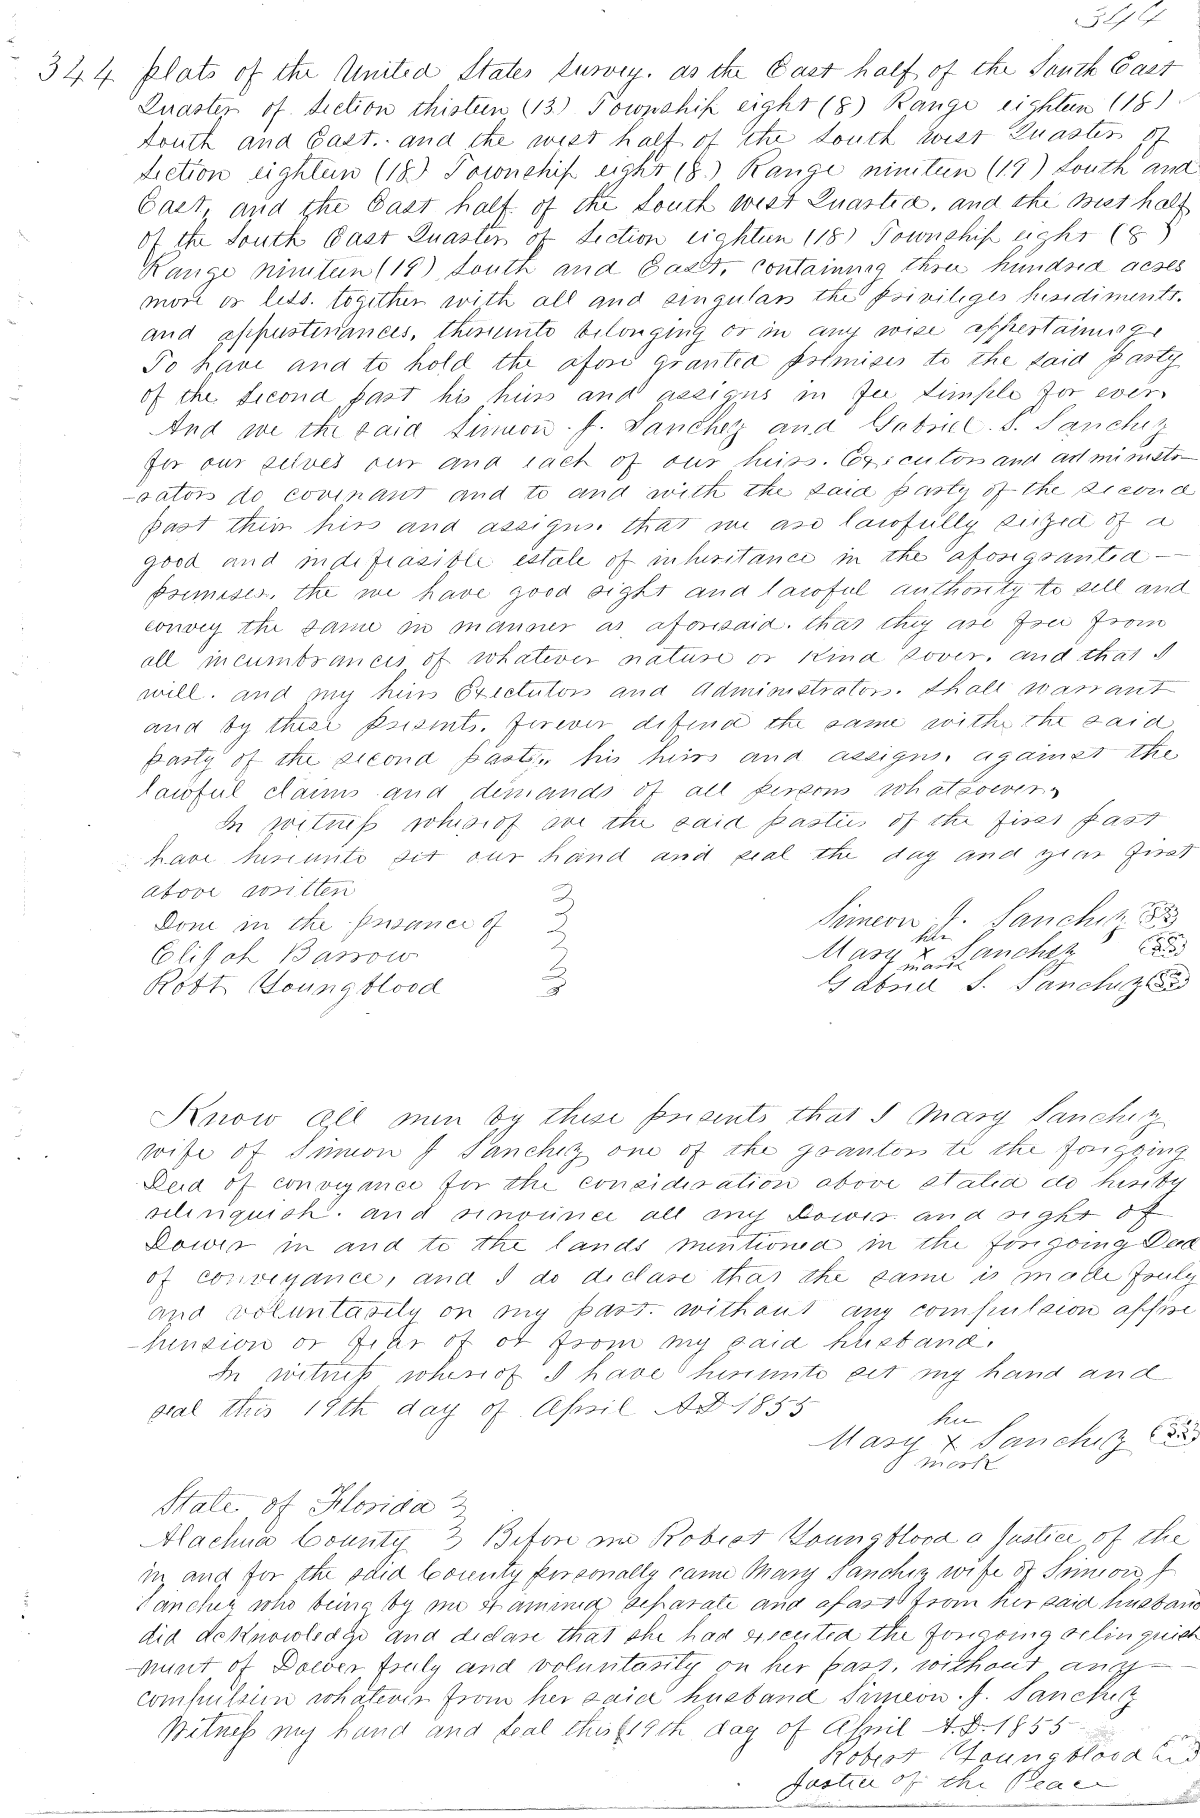 344
344 plats of the United States Survey. as the East half of the South East
Quarter of Section thirteen (13) Township eight (8) Range eighteen (18)
South and East. and the west half of the South west Quarter of
Section eighteen (18) Township eight (8) Range nineteen (19) South and
East, and the East half of the South west Quarter. and the west half
of the South East Quarter of Section eighteen (18) Township eight (8)
Range nineteen (19) South and East. containing three hundred acres
more or less. together with all and singular the priviliges herediments.
and appurtenances. thereunto belonging or in any wise appertaining.
To have and to hold the afore granted premises to the said party
of the Second part his heirs and assigns in fee Simple for ever.
And we the said Simeon. J. Sanchez and Gabriel. S. Sanchez
for our selves our and each of our heirs. Executors and administ-
-rators do covenant and to and with the said party of the second
part their hirs and assigns. that we are lawfully seized of a
good and indefeasible estate of inheritance in the aforegranted-
premises. the we have good right and lawful authority to sell and
convey the same in manner as aforesaid. that they are free from
all incumbrances of whatever nature or kind sover. and that I
will. and my heirs Exectutors and Administrators. shall warrant
and by these presents. forever defend the same withe the said
party of the second part. his heirs and assigns. against the
lawful claims and demands of all persons whatsoever.
In witness whereof we the said parties of the first part
have hereunto set our hand and seal the day and year first
above written
Done in the presance of
Elijah Barrow
Robt Youngblood
Simeon J. Sanchez SS
her
Mary x Sanchez SS
mark
Gabriel S. Sanchez SS
Know all men by these presents that I Mary Sanchez
wife of Simeon J Sanchez one of the grantors te the forgoing
Deed of conveyance for the consideration above stated do hereby
relinquish. and renounce all my Dower and right of
Dower in and to the lands mentioned in the forgoing Deed
of conveyance, and I do declare that the same is made fruly
and voluntarily on my part. without any compulsion appre
-hension or fear of or from my said husband.
In witness whereof I have hereunto set my hand and
seal this 19th day of April AD 1855
her
Mary x Sanchez SS
mark
State of Florida
Alachua County Before me Robert Youngblood a Justice of the
in and for the said County personally came Mary Sanchez wife of Simeon J
Sanchez who being by me examined separate and apart from her said husband
did acknowledge and declare that she had executed the forgoing relinquish
-ment of Dower fruly and voluntarily on her part. without any-
compulsion whatever from her said husband Simeon. J. Sanchez
Witness my hand and seal this 19th day of April A.D. 1855
Robert Youngblood
Justice of the Peace